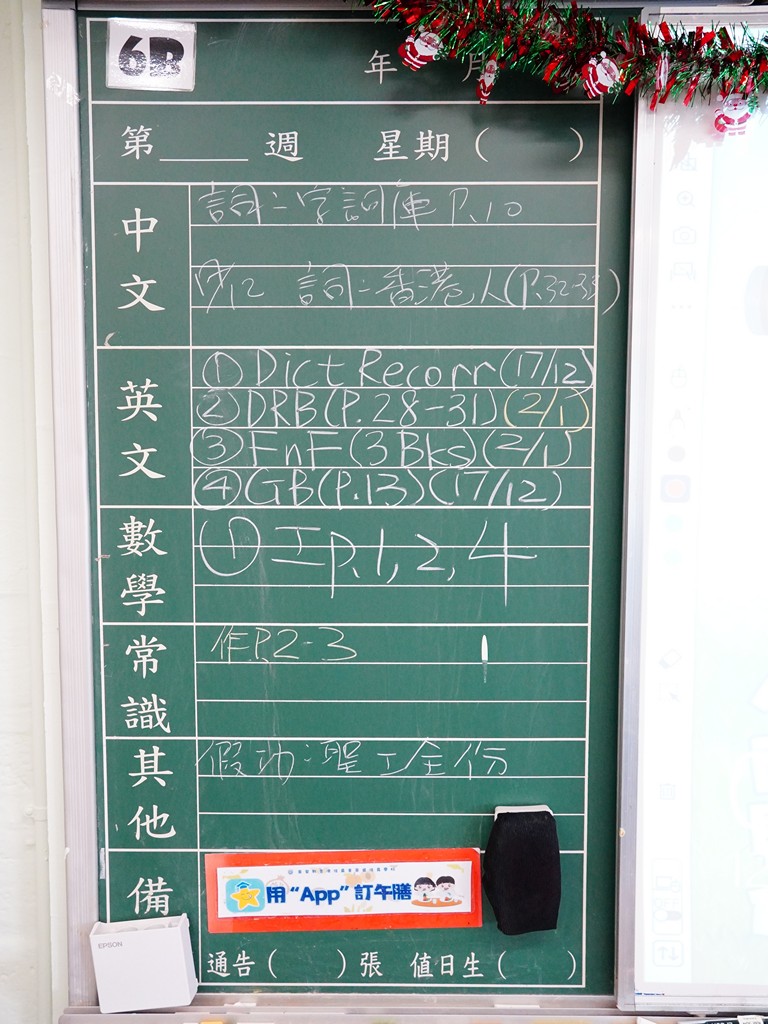 6B
年 月
第____週 星期( )
中文
詞:字詞庫 P.10
詞:香港人(P.32-33)
英文
① Dict Recorr (17/12)
② DRB (P.28-31) (2/1)
③ FnF (3 Bks) (2/1)
④ GB (P.13) (17/12)
數學
① 工=P.1, 2, 4
常識
作P.2-3
其他
假功:聖工全份
備
用 “App” 訂午膳
EPSON
通告( )張 值日生( )